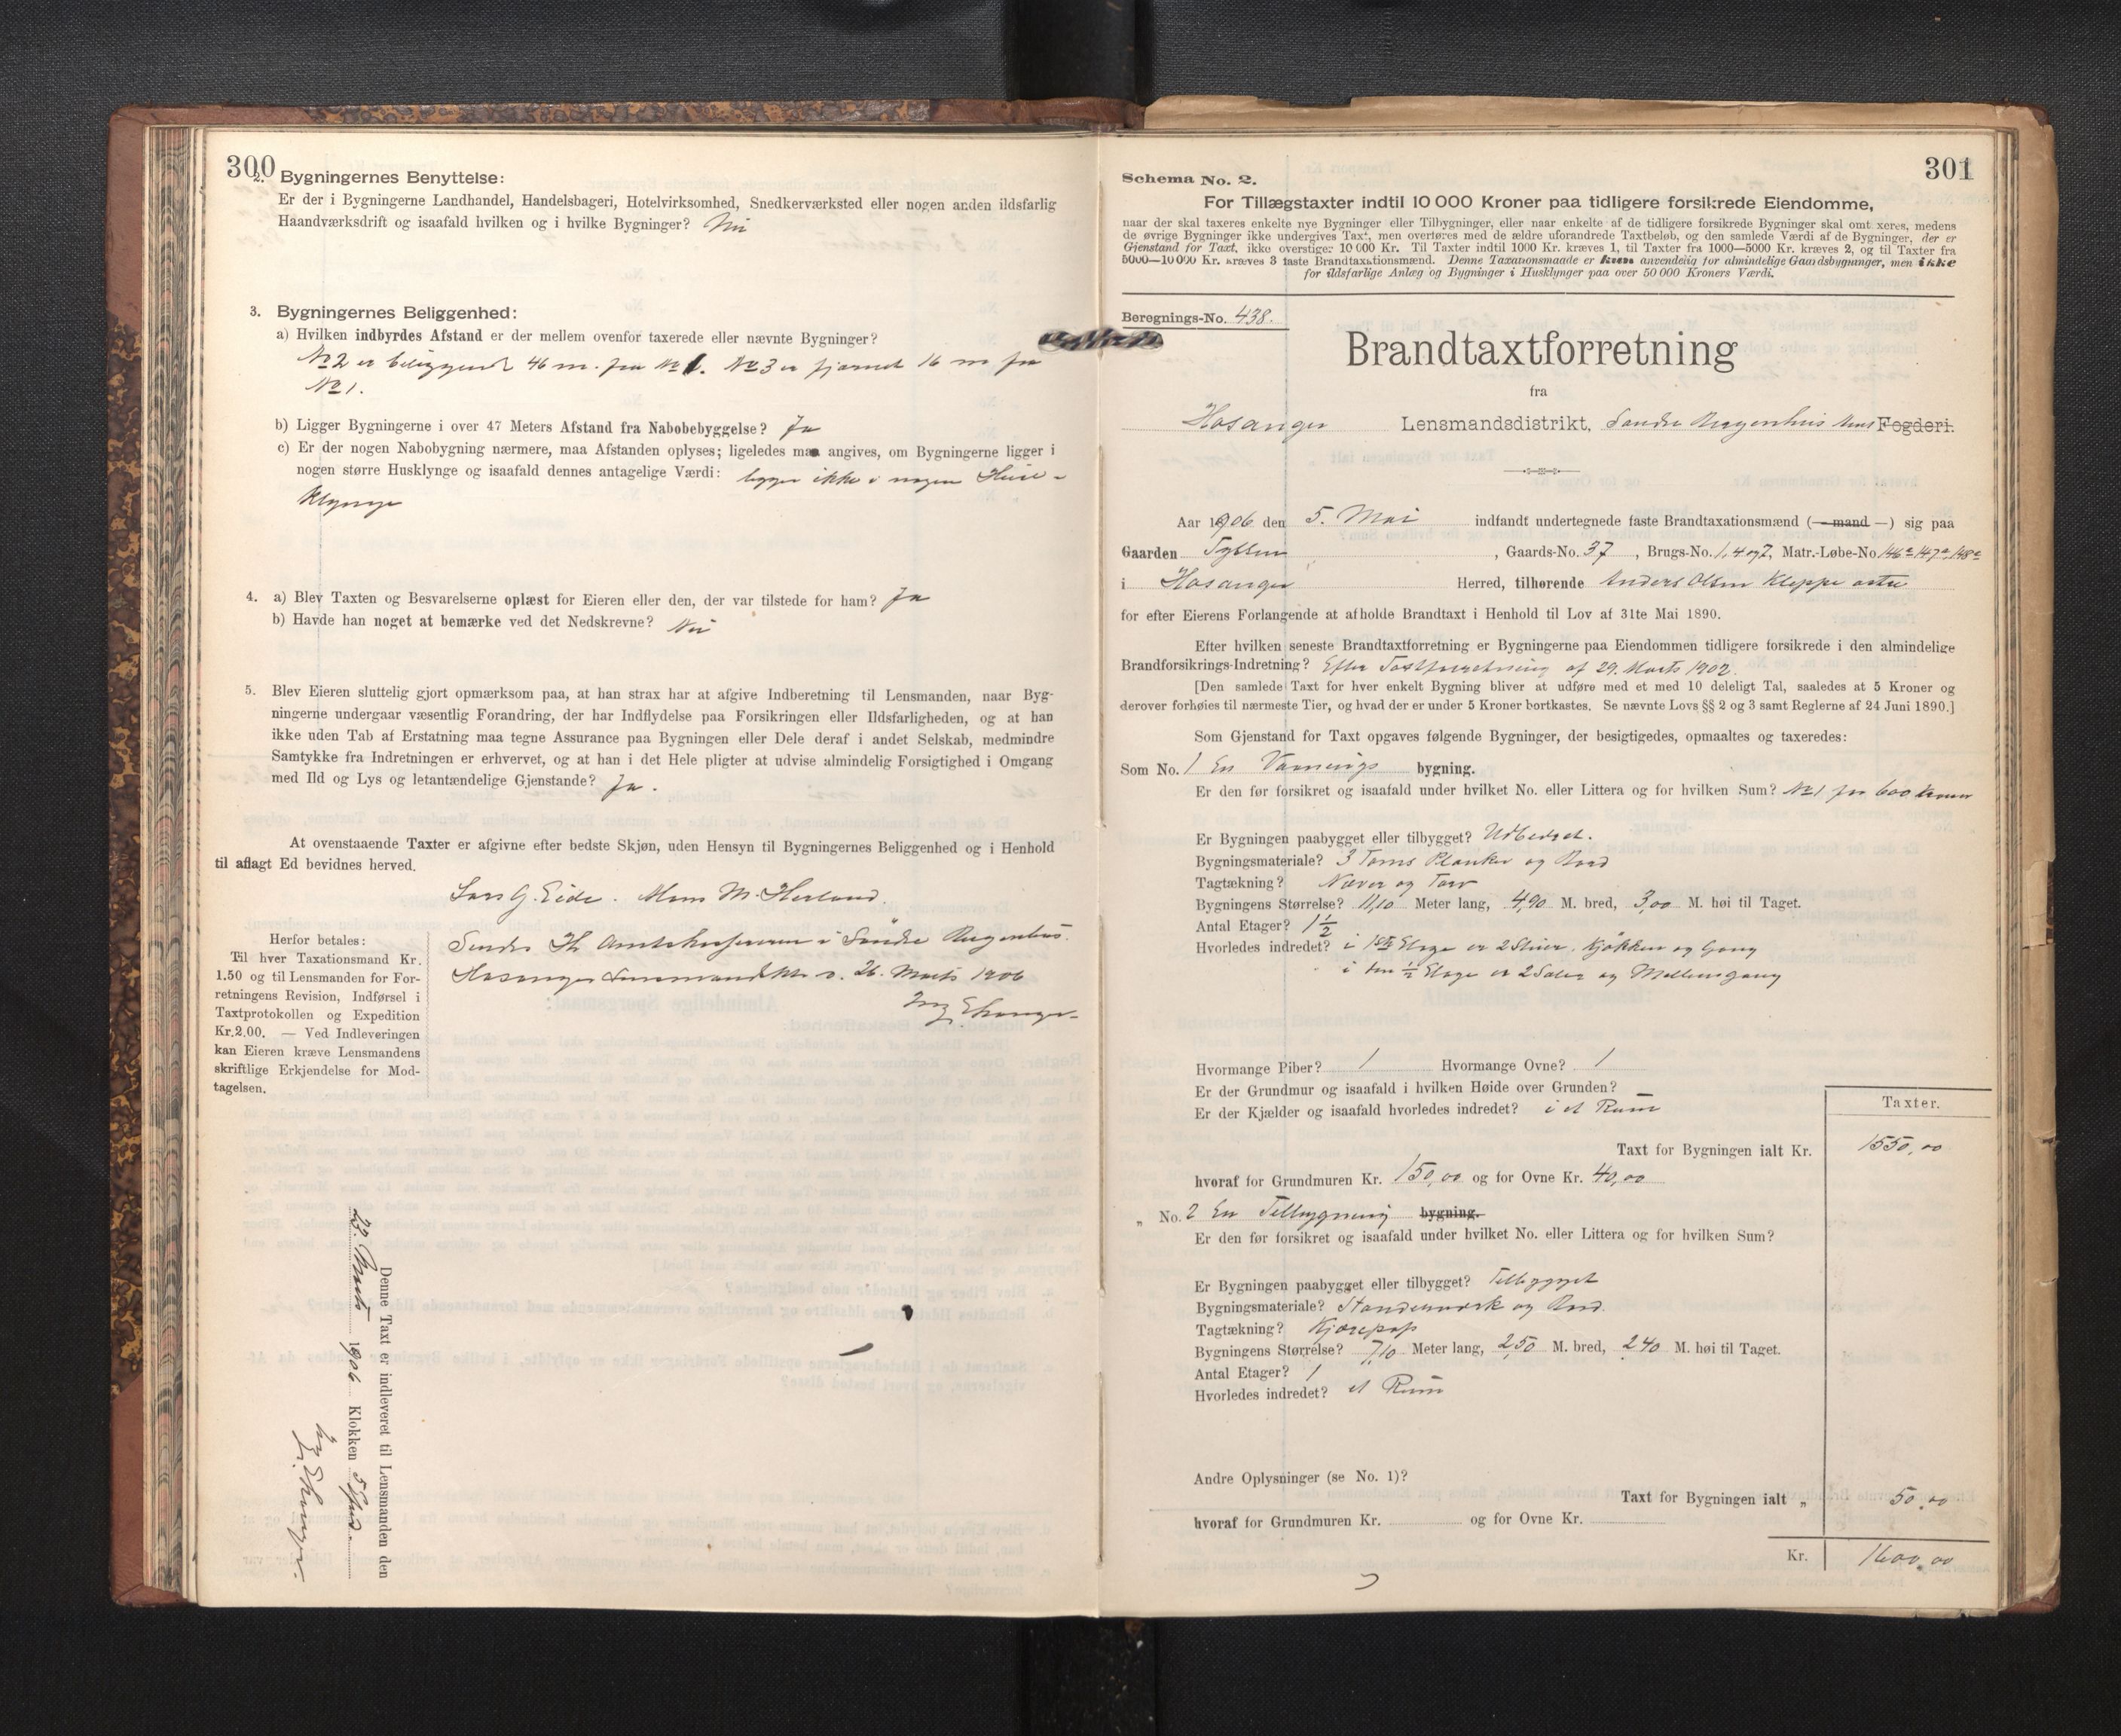 300
2. Bygningernes Benyttelse:
Er der i Bygningerne Landhandel, Handelsbageri, Hotelvirksomhed, Snedkerværksted eller nogen anden ildsfarlig
Haandværksdrift og isaafald hvilken og i hvilke Bygninger? Nei
3. Bygningernes Beliggenhed:
a) Hvilken indbyrdes Afstand er der mellem ovenfor taxerede eller nævnte Bygninger?
No 2 er beliggende 46 m. fra No 1. No 3 er fjernet 16 m fra
No 1.
b) Ligger Bygningerne i over 47 Meters Afstand fra Nabobebyggelse? Ja
c) Er der nogen Nabobygning nærmere, maa Afstanden oplyses; ligeledes maa angives, om Bygningerne ligger i
nogen større Husklynge og isaafald dennes antagelige Værdi: ligger ikke i nogen Huse-
klynge
4. a) Blev Taxten og Besvarelserne oplæst for Eieren eller den, der var tilstede for ham? Ja
b) Havde han noget at bemærke ved det Nedskrevne? Nei
5. Blev Eieren sluttelig gjort opmærksom paa, at han strax har at afgive Indberetning til Lensmanden, naar Byg-
ningerne undergaar væsentlig Forandring, der har Indflydelse paa Forsikringen eller Ildsfarligheden, og at han
ikke uden Tab af Erstatning maa tegne Assurance paa Bygningen eller Dele deraf i andet Selskab, medmindre
Samtykke fra Indretningen er erhvervet, og at han i det Hele pligter at udvise almindelig Forsigtighed i Omgang
med Ild og Lys og letantændelige Gjenstande? Ja.
At ovenstaaende Taxter er afgivne efter bedste Skjøn, uden Hensyn til Bygningernes Beliggenhed og i Henhold
til aflagt Ed bevidnes herved.
Lars G. Eide. Mons M. Herland.
Sendes Hr Amtskassereren i Søndre Bergenhus.
Hosanger Lensmandsktr d. 26. Marts 1906
Herfor betales:
Til hver Taxationsmand Kr.
1.50 og til Lensmanden for For-
retningens Revision, Indførsel i
Taxtprotokollen og Expedition
Kr.2.00. — Ved Indleveringen
kan Eieren kræve Lensmandens
skriftlige Erkjendelse for Mod-
tagelsen.
Denne Taxt er indleveret til Lensmanden den
23. Marts 1906 Klokken 5
301
Schema No. 2.
For Tillægstaxter indtil 10 000 Kroner paa tidligere forsikrede Eiendomme,
naar der skal taxeres enkelte nye Bygninger eller Tilbygninger, eller naar enkelte af de tidligere forsikrede Bygninger skal omtaxeres, medens
de øvrige Bygninger ikke undergives Taxt, men overføres med de ældre uforandrede Taxtbeløb, og den samlede Værdi af de Bygninger, der er
Gjenstand for Taxt, ikke overstiger 10 000 Kr. Til Taxter indtil 1000 Kr. kræves 1, til Taxter fra 1000—5000 Kr. kræves 2, og til Taxter fra
5000—10 000 Kr. kræves 3 faste Brandtaxationsmænd. Denne Taxationsmaade er kun anvendelig for almindelige Gaardsbygninger, men ikke
for ildsfarlige Anlæg og Bygninger i Husklynger paa over 50 000 Kroners Værdi.
Beregnings-No. 438.
Brandtaxtforretning
fra
Hosanger Lensmandsdistrikt, Søndre Bergenhus Amts Fogderi.
Aar 1906 den 5. Mai indfandt undertegnede faste Brandtaxationsmænd (—mand—) sig paa
Gaarden Tyssen, Gaards-No. 37, Brugs-No. 1, 4 og 7, Matr.-Løbe-No 146a 147a 148a
i Hosanger Herred, tilhørende Anders Olsen Kleppe østre
for efter Eierens Forlangende at afholde Brandtaxt i Henhold til Lov af 31te Mai 1890.
Efter hvilken seneste Brandtaxtforretning er Bygningerne paa Eiendommen tidligere forsikrede i den almindelige
Brandforsikrings-Indretning? Efter Taxtforretning af 29. Marts 1902.
[Den samlede Taxt for hver enkelt Bygning bliver at udføre med et med 10 deleligt Tal, saaledes at 5 Kroner og
derover forhøies til nærmeste Tier, og hvad der er under 5 Kroner bortkastes. Se nævnte Lovs §§ 2 og 3 samt Reglerne af 24 Juni 1890.]
Som Gjenstand for Taxt opgaves følgende Bygninger, der besigtigedes, opmaaltes og taxeredes:
Som No. 1 En Vaanings bygning.
Er den før forsikret og isaafald under hvilket No. eller Littera og for hvilken Sum? No 1 for 600 Kroner
Er Bygningen paabygget eller tilbygget? Udbedret.
Bygningsmateriale? 3 Toms Planker og Bord
Tagtækning? Næver og Torv
Bygningens Størrelse? 11,10 Meter lang, 4,90 M. bred, 3,00 M. høi til Taget.
Antal Etager? 1 1/2
Hvorledes indredet? i 1ste Etage er 2 Stuer, Kjøkken og Gang
i den 1/2 Etage er 2 Saler og Mellemgang
Hvormange Piber? 1 Hvormange Ovne? 1
Er der Grundmur og isaafald i hvilken Høide over Grunden?
Er der Kjælder og isaafald hvorledes indredet? i et Rum
Taxter.
Taxt for Bygningen ialt Kr. 1550,00
hvoraf for Grundmuren Kr. 150,00 og for Ovne Kr. 40,00
„ No. 2 En Tilbygning bygning.
Er den før forsikret og isaafald under hvilket No. eller Littera og for hvilken Sum?
Er Bygningen paabygget eller tilbygget? Tilbygget
Bygningsmateriale? Standerværk og Bord.
Tagtækning? Kjærepap
Bygningens Størrelse? 7,10 Meter lang, 2,50 M. bred, 2,40 M. høi til Taget.
Antal Etager? 1
Hvorledes indredet? et Rum
Andre Oplysninger (se No. 1)?
Taxt for Bygningen ialt „ 50,00
hvoraf for Grundmuren Kr. og for Ovne Kr.
Kr. 1600,00